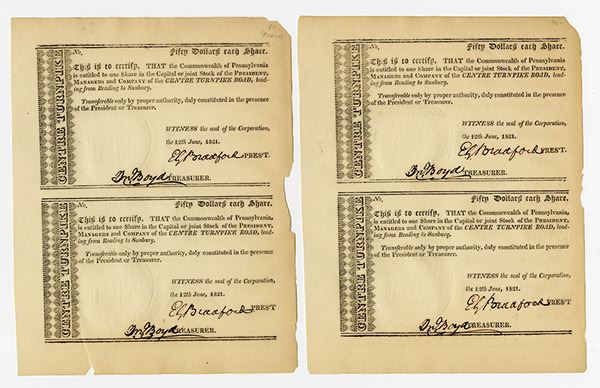 CENTRE TURNPIKE
No. Fifty Dollars each Share.
This is to certify, THAT the Commonwealth of Pennsylvania
is entitled to one Share in the Capital or joint Stock of the PRESIDENT,
MANAGERS and COMPANY of the CENTRE TURNPIKE ROAD, lead-
ing from Reading to Sunbury.
Transferable only by proper authority, duly constituted in the presence
of the President or Treasurer.
WITNESS the seal of the Corporation,
the 12th June, 1821.
EG Bradford PRES'T.
Jn. Boyd TREASURER.
CENTRE TURNPIKE
No. Fifty Dollars each Share.
This is to certify, THAT the Commonwealth of Pennsylvania,
is entitled to one Share in the Capital or joint Stock of the PRESIDENT,
MANAGERS and COMPANY of the CENTRE TURNPIKE ROAD, lead-
ing from Reading to Sunbury.
Transferable only by proper authority, duly constituted in the presence
of the President or Treasurer.
WITNESS the seal of the Corporation,
the 12th June, 1821.
EG Bradford PRES'T
Jn. Boyd TREASURER.
CENTRE TURNPIKE
No. Fifty Dollars each Share.
This is to certify, THAT the Commonwealth of Pennsylvania
is entitled to one Share in the Capital or joint Stock of the PRESIDENT,
MANAGERS and COMPANY of the CENTRE TURNPIKE ROAD, lead-
ing from Reading to Sunbury.
Transferable only by proper authority, duly constituted in the presence
of the President or Treasurer.
WITNESS the seal of the Corporation,
the 12th June, 1821.
EG Bradford PRES'T.
Jn. Boyd TREASURER.
CENTRE TURNPIKE
No. Fifty Dollars each Share.
This is to certify, THAT the Commonwealth of Pennsylvania,
is entitled to one Share in the Capital or joint Stock of the PRESIDENT,
MANAGERS and COMPANY of the CENTRE TURNPIKE ROAD, lead-
ing from Reading to Sunbury.
Transferable only by proper authority, duly constituted in the presence of
the President or Treasurer.
WITNESS the seal of the Corporation,
the 12th June, 1821.
EG Bradford PRES'T
Jn. Boyd TREASURER.